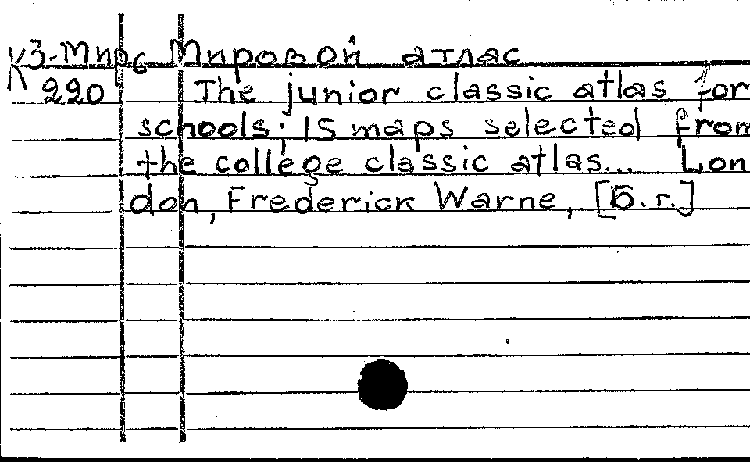 К3-Мир6 Мировой атлас
К 220 The junior classic atlas for
schools; 15 maps selected from
the college classic atlas... Lon
don, Frederick Warne, [б.г.]